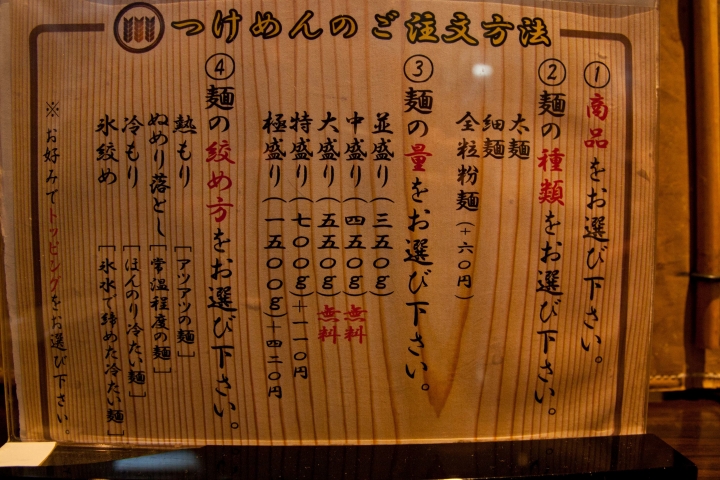 つけめんのご注文方法
①商品をお選び下さい。
②麺の種類をお選び下さい。
太麺
細麺
全粒粉麺(+六〇円)
③麺の量をお選び下さい。
並盛り(三五〇g)
中盛り(四五〇g)無料
大盛り(五五〇g)無料
特盛り(七〇〇g)+一一〇円
極盛り(一五〇〇g)+四二〇円
④麺の絞め方をお選び下さい。
熱もり[アツアツの麺]
ぬめり落とし[常温程度の麺]
冷もり[ほんのり冷たい麺]
氷絞め[氷水で締めた冷たい麺]
※お好みでトッピングをお選び下さい。